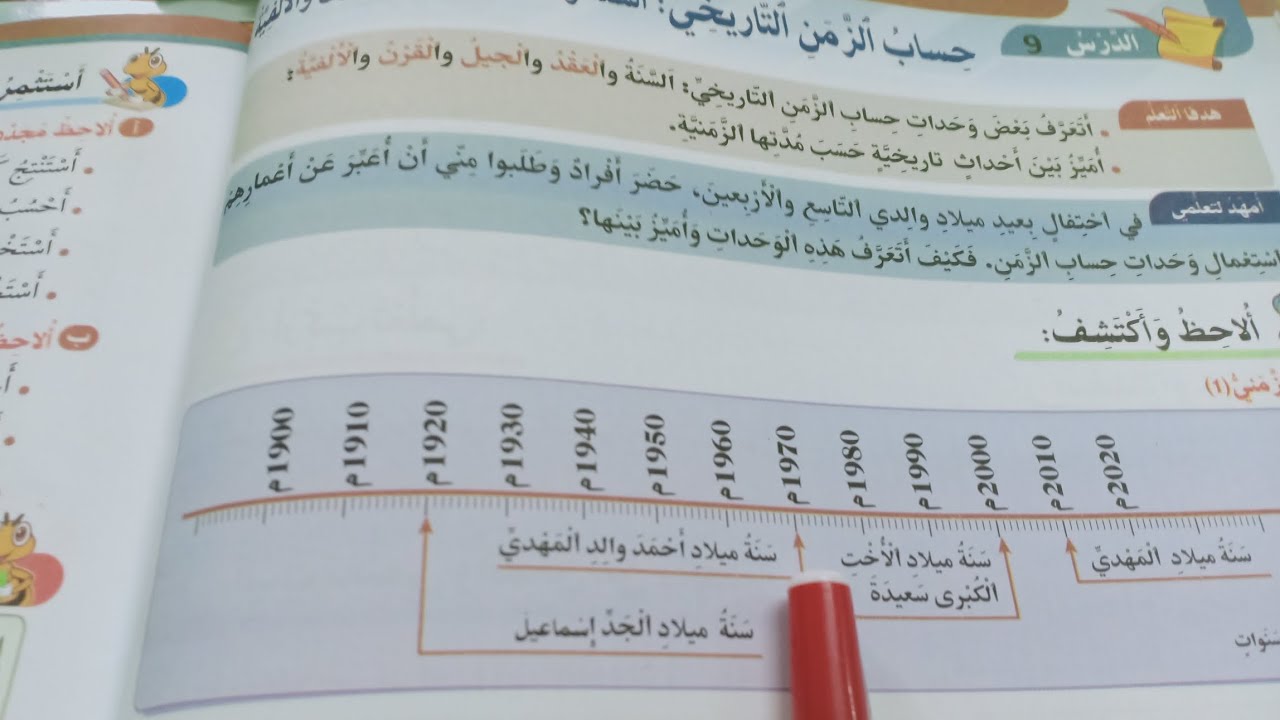 الدَّرْسُ 9
حِسابُ ٱلزَّمَنِ ٱلتَّاريخِيِّ:
هدفا التعلم
• أَتَعَرَّفُ بَعْضَ وَحَداتِ حِسابِ الزَّمَنِ التَّاريخِيِّ: اَلسَّنَةُ والْعَقْدُ والْجيلُ والْقَرْنُ والْأَلْفِيَّةُ؛
• أُمَيِّزُ بَيْنَ أَحْداثٍ تاريخِيَّةٍ حَسَبَ مُدَّتِها الزَّمَنِيَّةِ.
أمهد لتعلمي
في احْتِفالٍ بِعيدِ ميلادِ والِدي التَّاسِعِ والْأَرْبعينَ، حَضَرَ أَفْرادٌ وَطَلَبوا مِنّي أَنْ أُعَبِّرَ عَنْ أَعْمارِهِمْ
اسْتِعْمالِ وَحَداتِ حِسابِ الزَّمَنِ. فَكَيْفَ أَتَعَرَّفُ هَذِهِ الْوَحَداتِ وَأُمَيِّزُ بَيْنَها؟
أُلاحِظُ وَأَكْتَشِفُ:
(1)
1900م 1910م 1920م 1930م 1940م 1950م 1960م 1970م 1980م 1990م 2000م 2010م 2020م
سَنَةُ ميلادِ الْمَهْدِيِّ
سَنَةُ ميلادِ الْأُخْتِ
الْكُبْرى سَعيدَةَ
سَنَةُ ميلادِ أَحْمَدَ والِدِ الْمَهْدِيِّ
سَنَةُ ميلادِ الْجَدِّ إِسْماعيلَ
أ أُلاحِظُ
• أَسْتَنْتِجُ
• أَحْسُبُ
ب